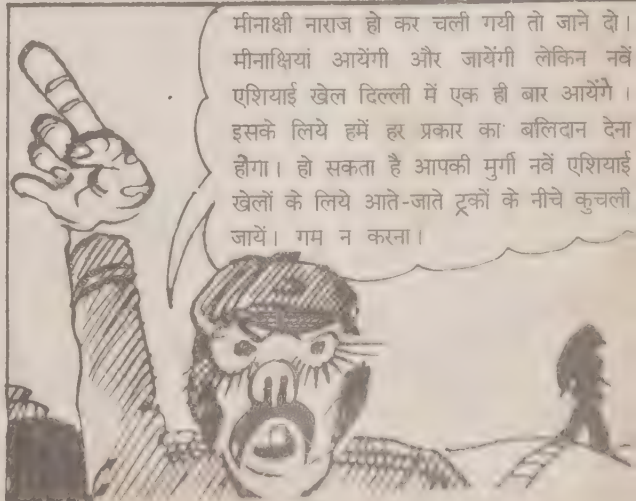 मीनाक्षी नाराज हो कर चली गयी तो जाने दो।
मीनाक्षियां आयेंगी और जायेंगी लेकिन नवें
एशियाई खेल दिल्ली में एक ही बार आयेंगे ।
इसके लिये हमें हर प्रकार का बलिदान देना
होगा। हो सकता है आपकी मुर्गी नवें एशियाई
खेलों के लिये आते-जाते ट्रकों के नीचे कुचली
जायें। गम न करना।